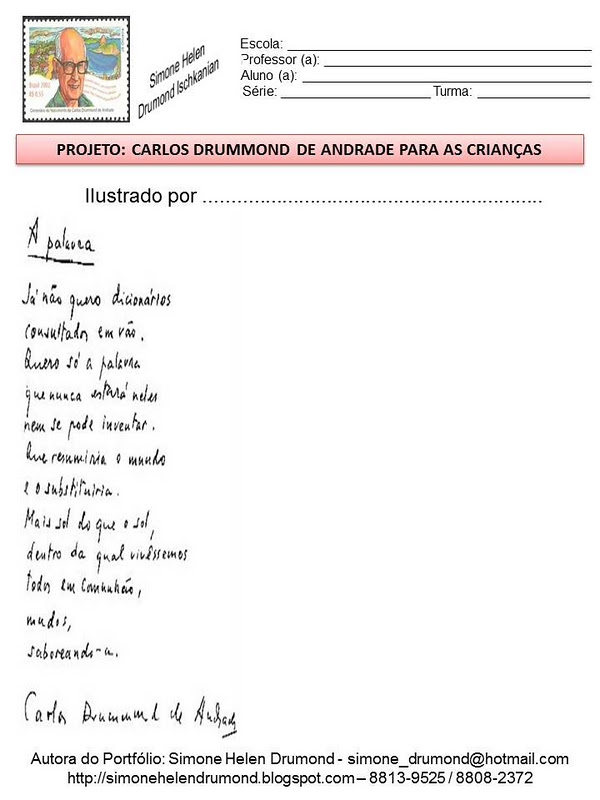 Brasil 2002
R$ 0,55
Centenário do Nascimento de Carlos Drummond de Andrade
Simone Helen
Drumond Ischkanian
Escola: ___________________________________________
Professor (a): ______________________________________
Aluno (a): _________________________________________
Série: _____________________ Turma: ________________
PROJETO: CARLOS DRUMMOND DE ANDRADE PARA AS CRIANÇAS
Ilustrado por ............................................................
A palavra
Já não quero dicionários
consultados em vão.
Quero só a palavra
que nunca estará neles
nem se pode inventar.
Que resumiria o mundo
e o substituiria.
Mais sol do que o sol,
dentro da qual vivêssemos
todos em comunhão,
mudos,
saboreando-a.
Carlos Drummond de Andrade
Autora do Portfólio: Simone Helen Drumond - simone_drumond@hotmail.com
http://simonehelendrumond.blogspot.com – 8813-9525 / 8808-2372